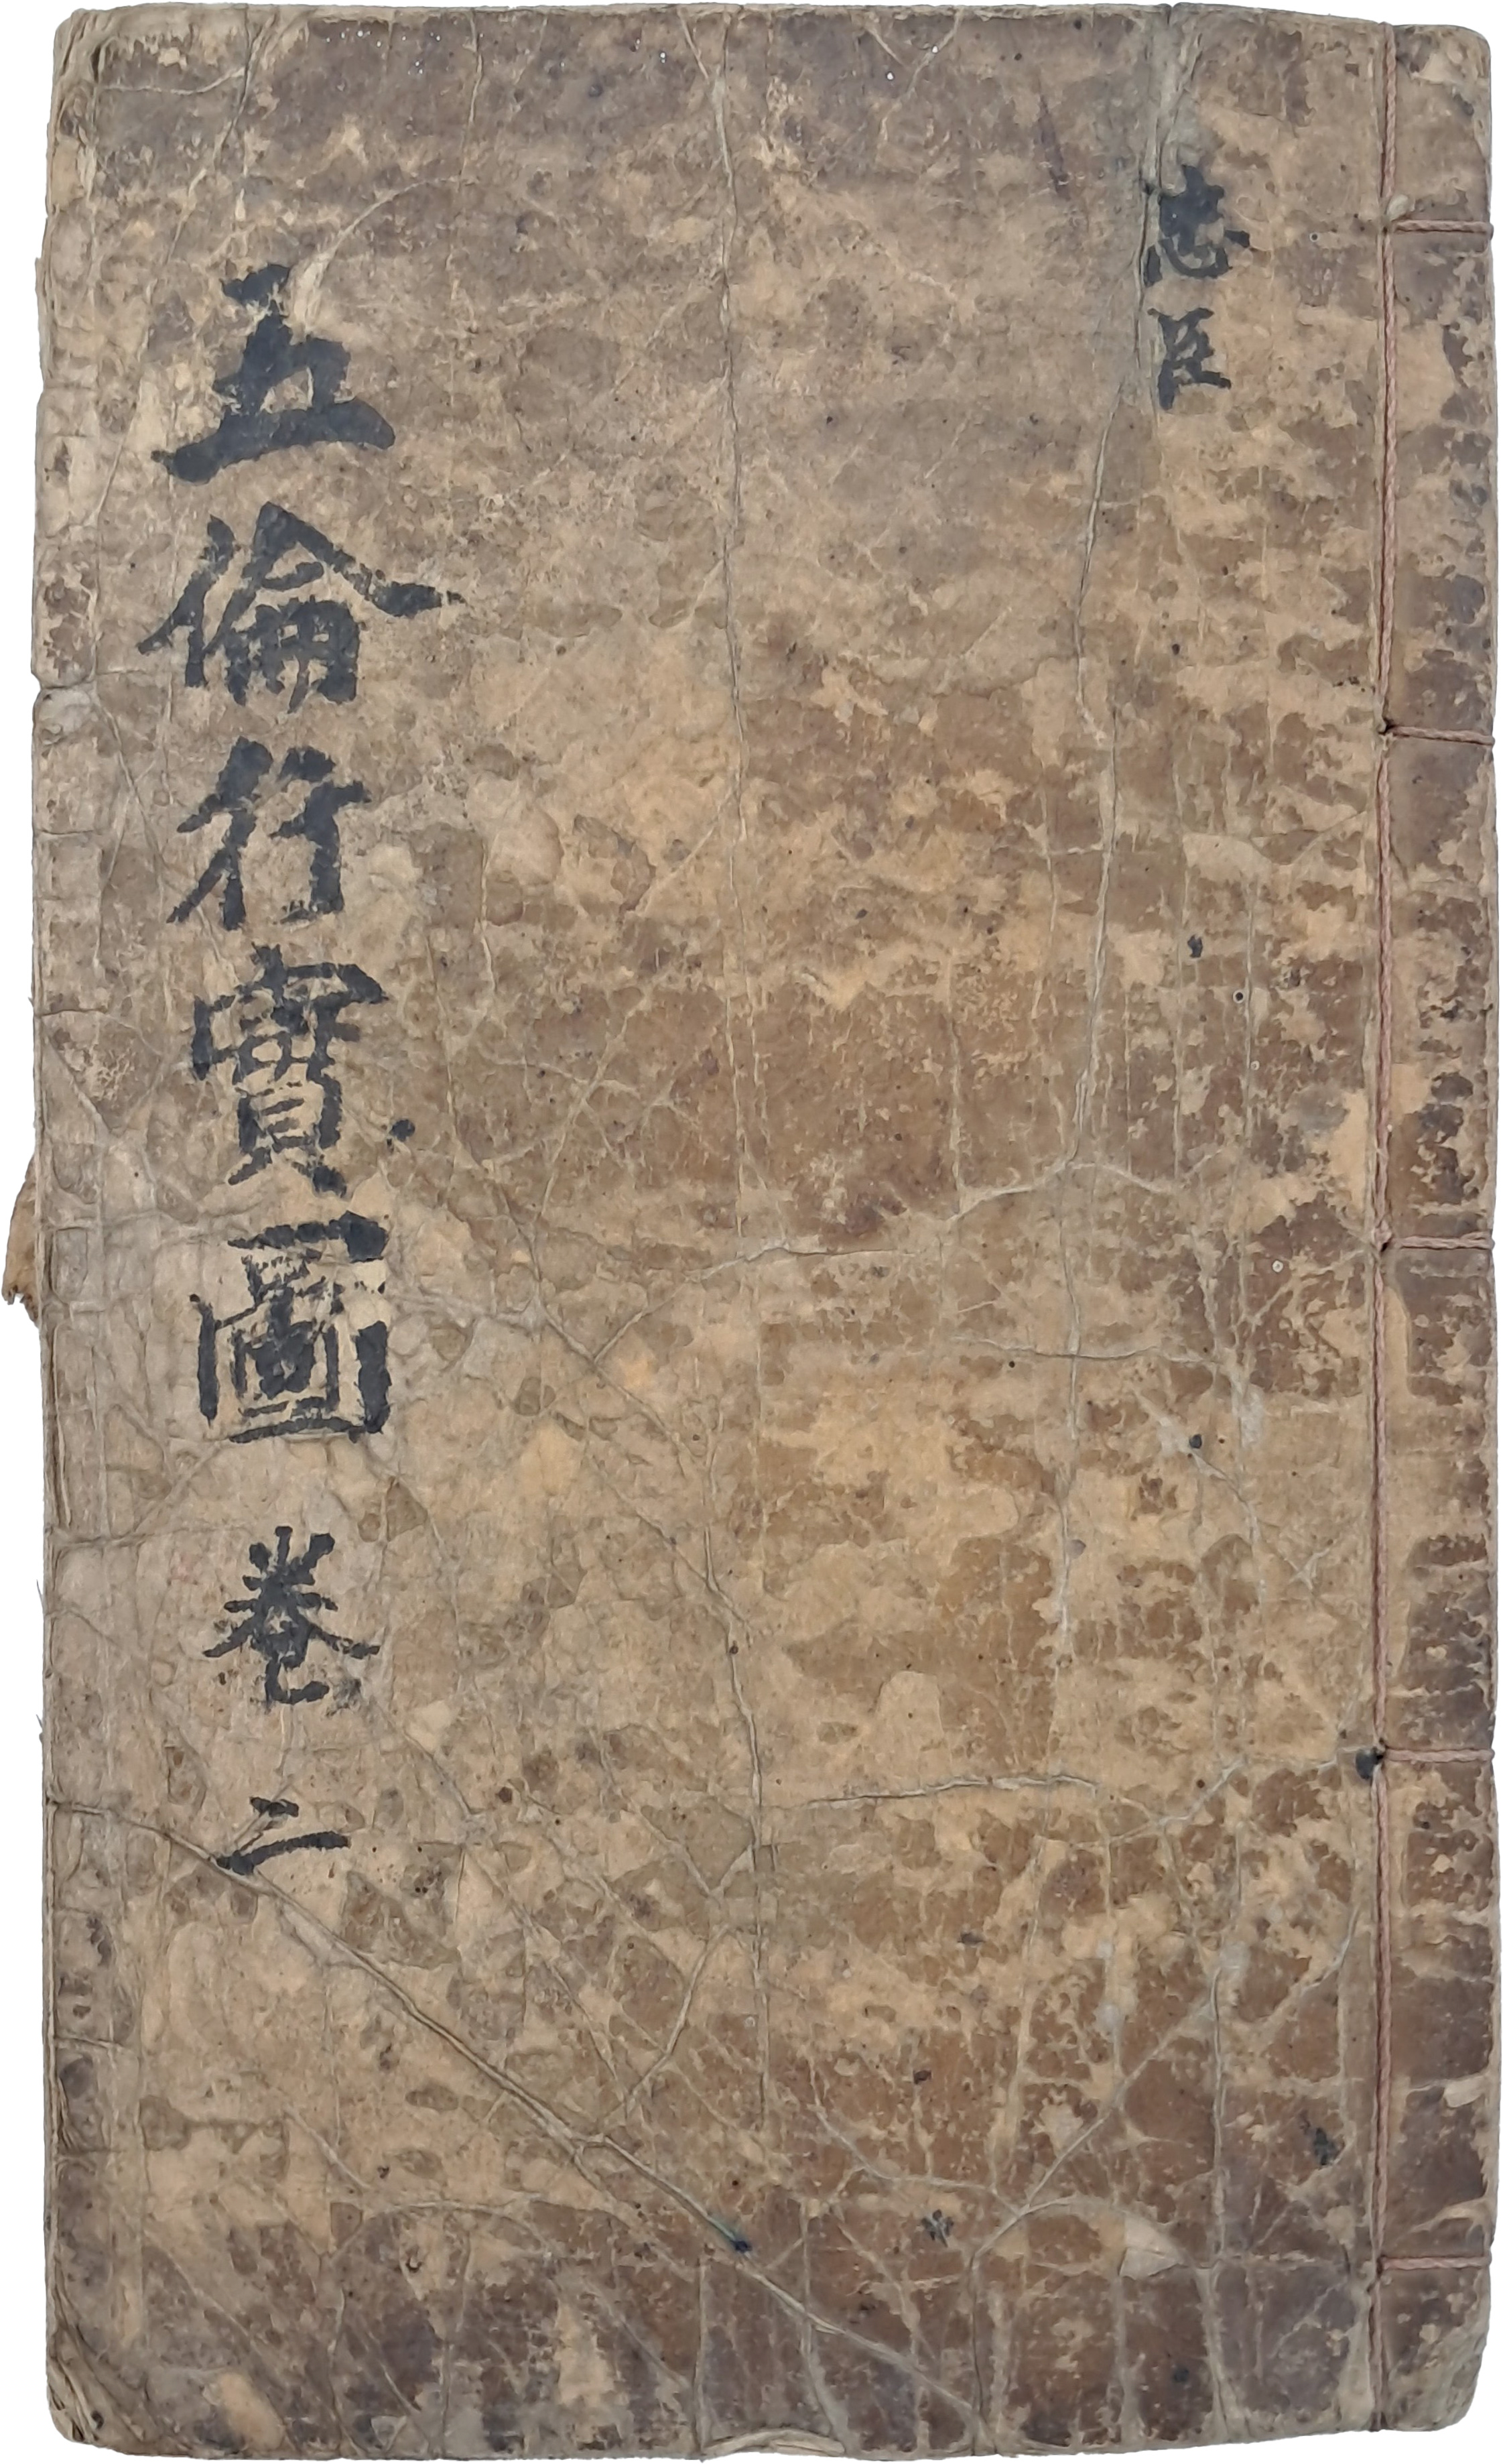 忠臣
五倫行實圖 卷二